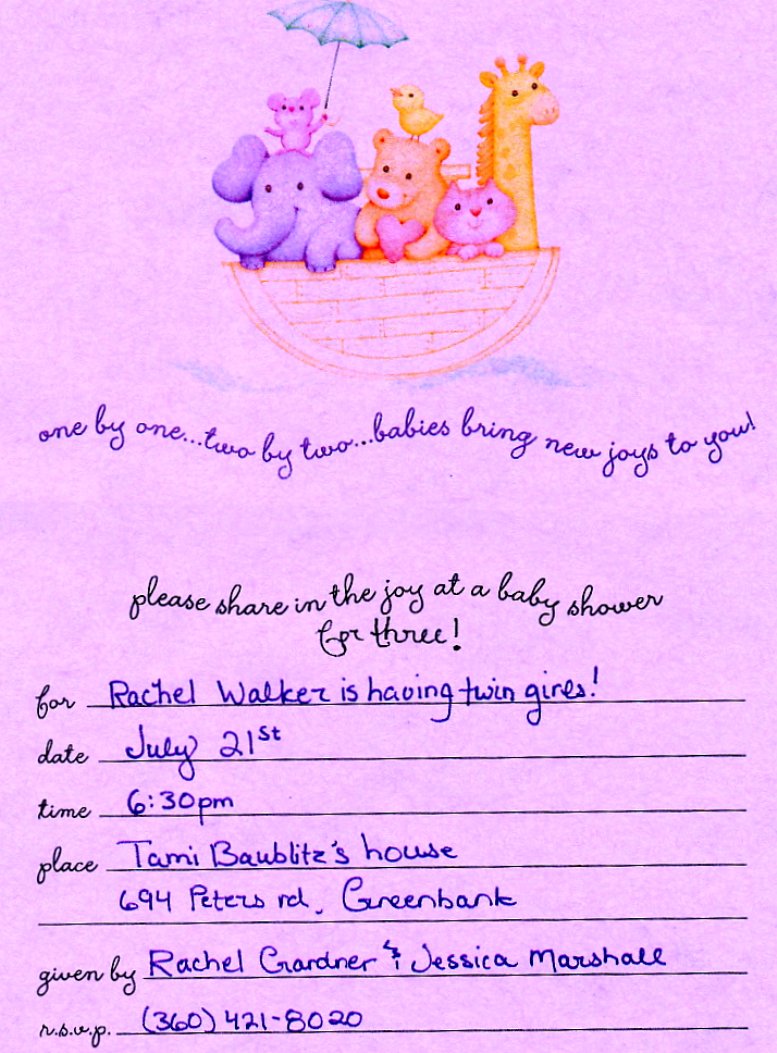 one by one...two by two...babies bring new joys to you!
please share in the joy at a baby shower
for three!
for Rachel Walker is having twin girls!
date July 21st
time 6:30pm
place Tami Baublitz's house
694 Peters rd, Greenbank
given by Rachel Gardner & Jessica Marshall
r.s.v.p. (360) 421-8020